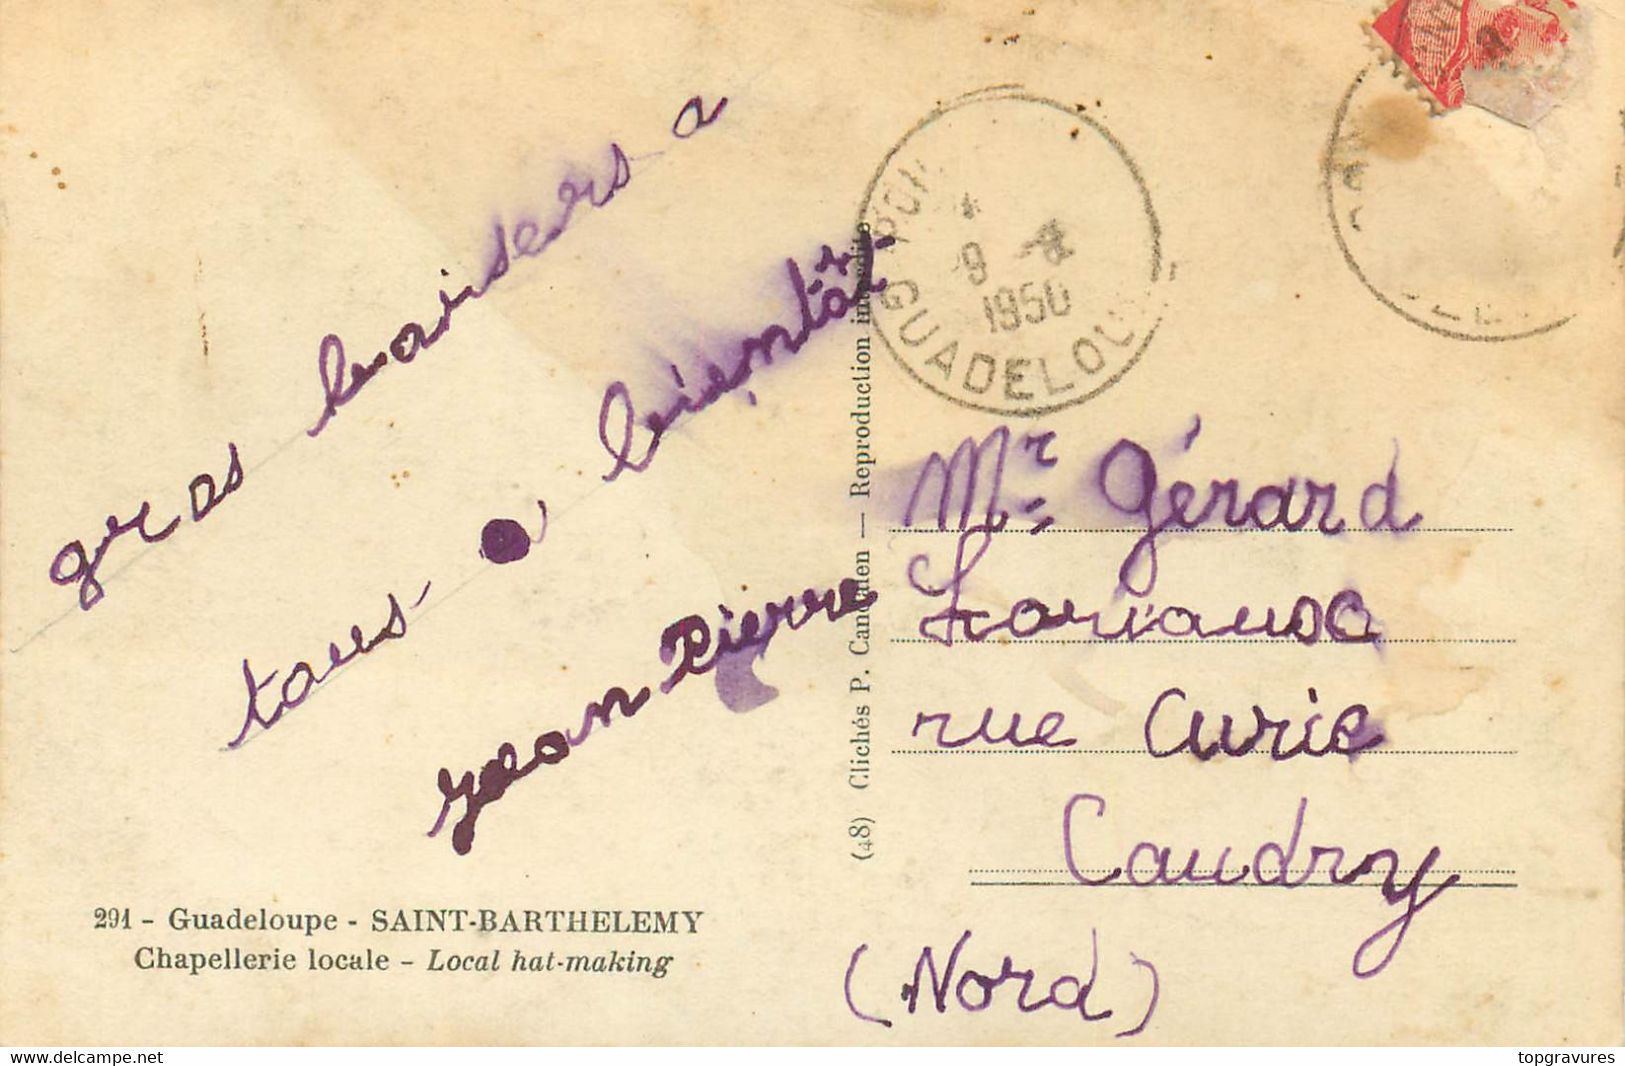 gros baisers a
tous a bientôt.
Jean Pierre
291 - Guadeloupe - SAINT-BARTHELEMY
Chapellerie locale - Local hat-making
(48) Clichés P. Candalen — Reproduction interdite
GUADELOU
9 - 1950
Mr Gérard
rue Curie
Caudry
(Nord)
www.delcampe.net
topgravures